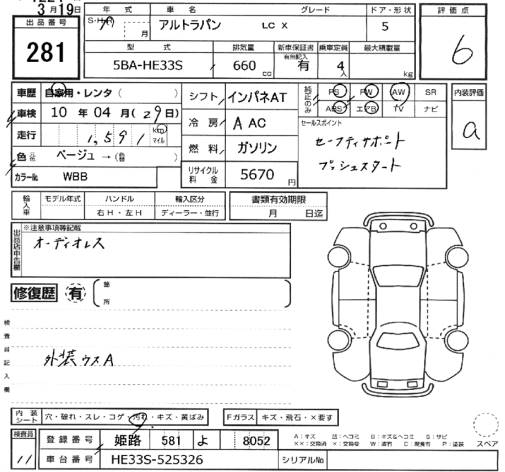 3月19日
出品番号 281
年式 7 月
車名 アルトラパン
グレード LC X
ドア・形状 5
評価点 6
型式 5BA-HE33S
排気量 660 cc
新車保証書 有無記入 有
乗車定員 4 人
最大積載量 kg
車歴 自家用・レンタ( )
車検 10 年 04 月 (29日)
走行 1,591 km マイル
色 ベージュ →( )
カラー№ WBB
シフト インパネAT
冷房 A AC
燃料 ガソリン
リサイクル料金 5670 円
純正のみ PS PW AW SR
ABS エアB TV ナビ
セールスポイント
セーフティサポート
プッシュスタート
内装評価 a
輸入車 モデル年式 ハンドル 右H・左H 輸入区分 ディーラー・並行
書類有効期限 月 日迄
※注意事項等記載
オーディオレス
修復歴 有 箇所
検査員記入欄
外装ウスA
内装シート 穴・破れ・スレ・コゲ・汚れ・キズ・黄ばみ
Fガラス キズ・飛石・×要す
検査員 11
登録番号 姫路 581 よ 8052
車台番号 HE33S-525326
シリアル№
スペア